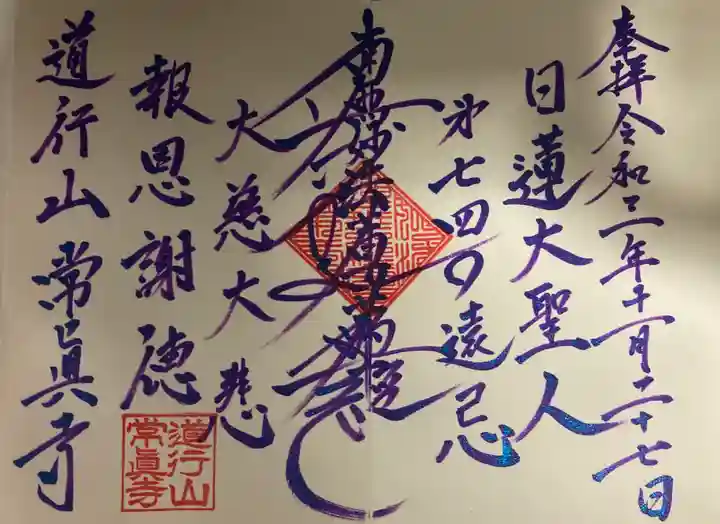 奉拝 令和三年十一月二十七日
日蓮大聖人
第七四〇遠忌
南無妙法蓮華経
大慈大悲
報恩謝徳
道行山 常眞寺
道行山
常眞寺